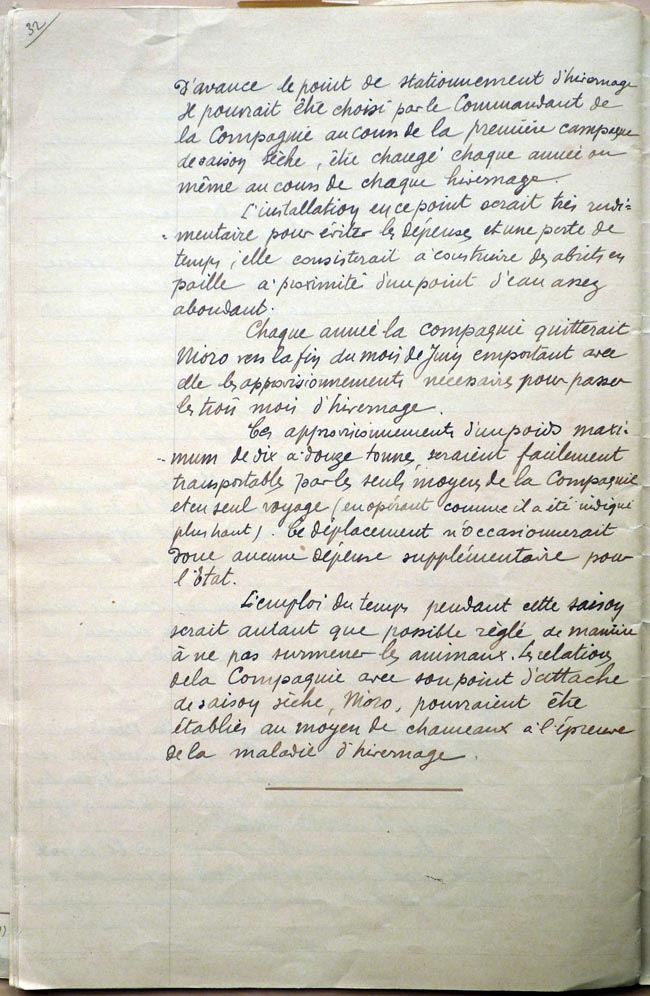 32
D'avance le point de stationnement d'hivernage
Il pourrait être choisi par le Commandant de
la Compagnie au cours de la première campagne
de saison sèche, être changé chaque année ou
même au cours de chaque hivernage.
L'installation en ce point serait très rudi=
=mentaire pour éviter les dépenses et une perte de
temps ; elle consisterait à construire des abris en
paille à proximité d'un point d'eau assez
abondant.
Chaque année la Compagnie quitterait
Nioro vers la fin du mois de Juin emportant avec
elle les approvisionnements necessaires pour passer
les trois mois d'hivernage.
Ces approvisionnements d'un poids maxi=
=mum de dix à douze tonnes, seraient facilement
transportables par les seuls moyens de la Compagnie
et en seul voyage (en opérant comme il a été indiqué
plus haut). Ce déplacement n'occasionnerait
donc aucune dépense supplémentaire pour
l'Etat.
L'emploi du temps pendant cette saison
serait autant que possible règlé de manière
à ne pas surmener les animaux. Les relations
de la Compagnie avec son point d'attache
de saison sèche, Nioro, pourraient être
établies au moyen de chameaux à l'épreuve
de la maladie d'hivernage.